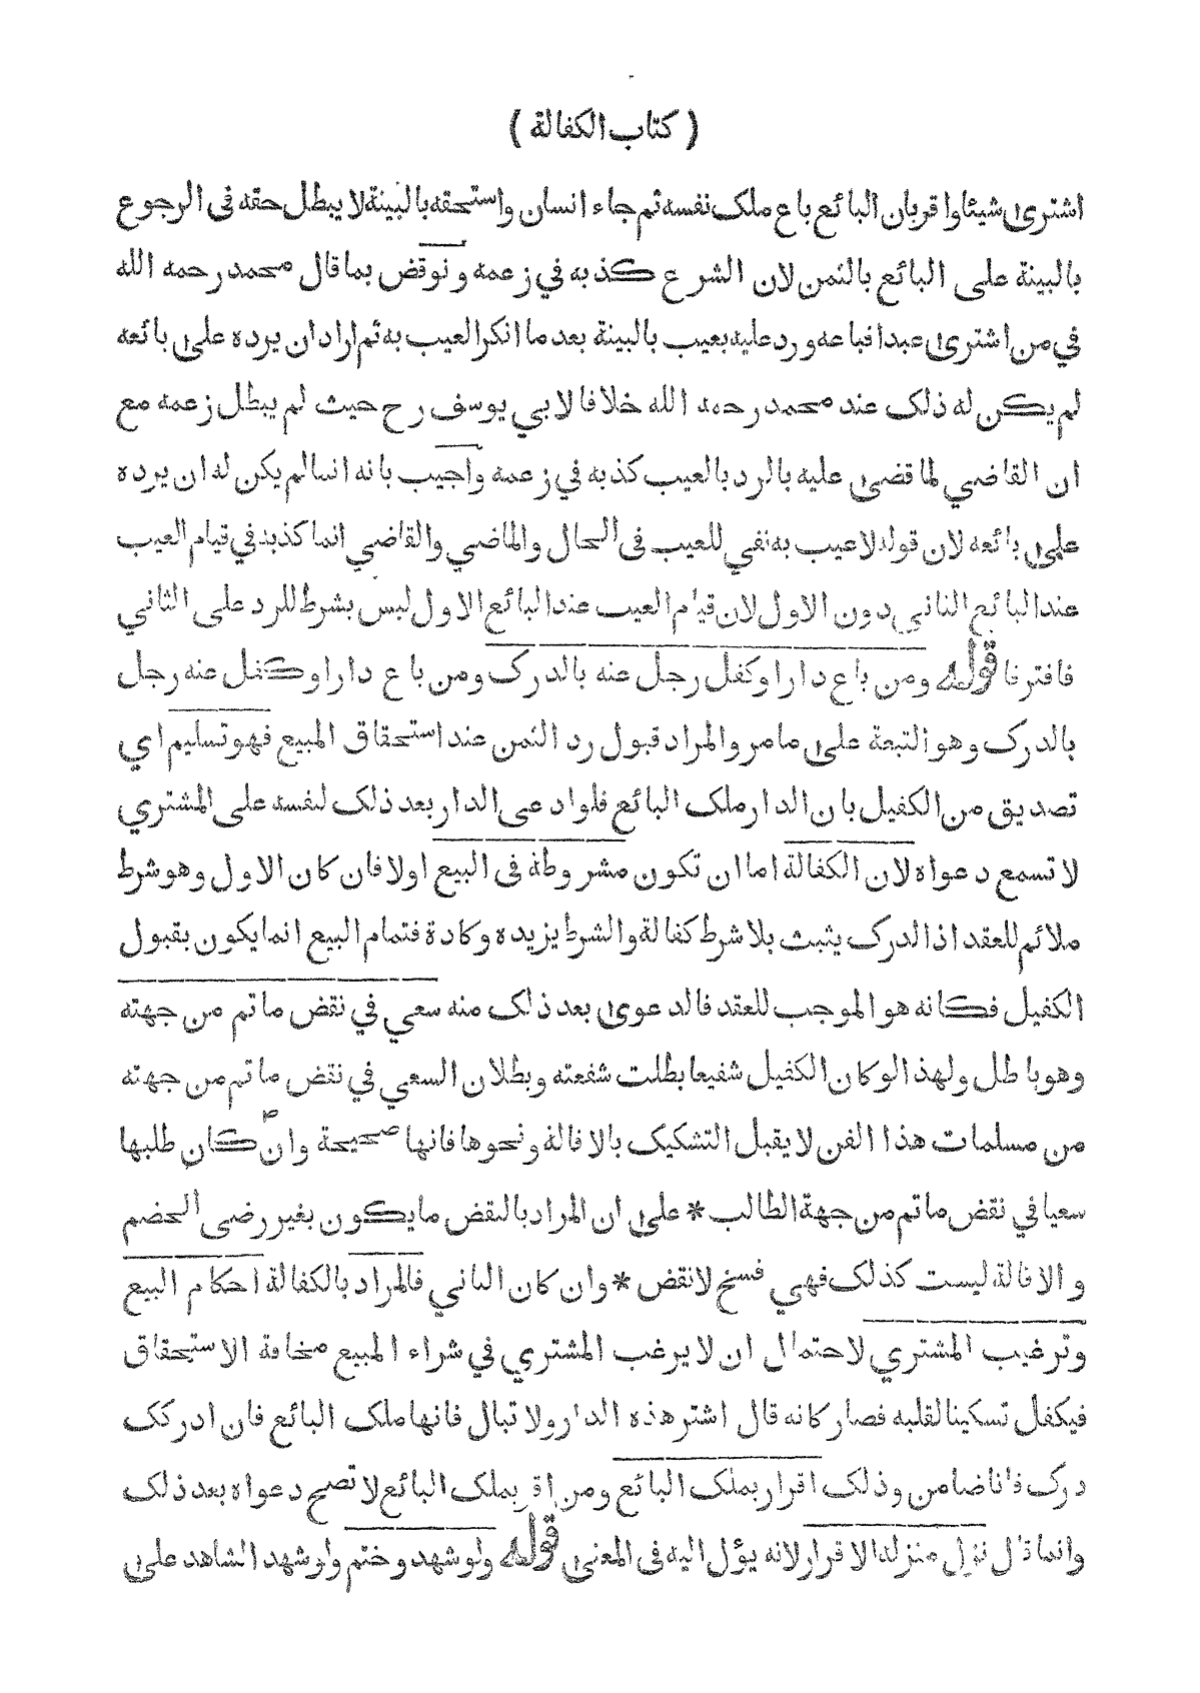 ( كتاب الكفالة )
اشترى شيئا واقر بان البائع باع ملك نفسه ثم جاء انسان واستحقه بالبينة لا يبطل حقه فى الرجوع
بالبينة على البائع بالثمن لان الشرع كذبه في زعمه ونوقض بما قال محمد رحمه الله
في من اشترى عبدا فباعه ورد عليه بعيب بالبينة بعد ما انكر العيب به ثم اراد ان يرده على بائعه
لم يكن له ذلك عند محمد رحمه الله خلافا لابي يوسف رح حيث لم يبطل زعمه مع
ان القاضي لما قضى عليه بالرد بالعيب كذبه في زعمه واجيب بانه انما لم يكن له ان يرده
على بائعه لان قوله لا عيب به نفي للعيب فى الحال والماضي والقاضي انما كذبه في قيام العيب
عند البائع الثاني دون الاول لان قيام العيب عند البائع الاول ليس بشرط للرد على الثاني
فافترقا قوله ومن باع دارا وكفل رجل عنه بالدرك ومن باع دارا وكفل عنه رجل
بالدرك وهو التبعة على ما مر والمراد قبول رد الثمن عند استحقاق المبيع فهو تسليم اي
تصديق من الكفيل بان الدار ملك البائع فلو ادعى الدار بعد ذلك لنفسه على المشتري
لا تسمع دعواه لان الكفالة اما ان تكون مشروطة فى البيع اولا فان كان الاول وهو شرط
ملائم للعقد اذ الدرك يثبت بلا شرط كفالة والشرط يزيده وكادة فتمام البيع انما يكون بقبول
الكفيل فكانه هو الموجب للعقد فالدعوى بعد ذلك منه سعي في نقض ما تم من جهته
وهو باطل ولهذا لو كان الكفيل شفيعا بطلت شفعته وبطلان السعي في نقض ما تم من جهته
من مسلمات هذا الفن لا يقبل التشكيك بالاقالة ونحوها فانها صحيحة وان كان طلبها
سعيا في نقض ما تم من جهة الطالب * على ان المراد بالنقض ما يكون بغير رضى الخصم
والاقالة ليست كذلك فهي فسخ لا نقض * وان كان الثاني فالمراد بالكفالة احكام البيع
وترغيب المشتري لاحتمال ان لا يرغب المشتري في شراء المبيع مخافة الاستحقاق
فيكفل تسكينا لقلبه فصار كانه قال اشتر هذه الدار ولا تبال فانها ملك البائع فان ادركك
درك فانا ضامن وذلك اقرار بملك البائع ومن اقر بملك البائع لا تصح دعواه بعد ذلك
وانما قال نزل منزلة الاقرار لانه يؤل اليه فى المعنى قوله ولو شهد وختم ولو شهد الشاهد على